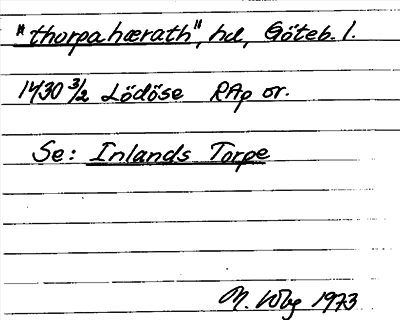 "thorpahærath", hd, Göteb. l.
1430 3/2 Lödöse RAp or.
Se: Inlands Torpe
M. Wbg 1973